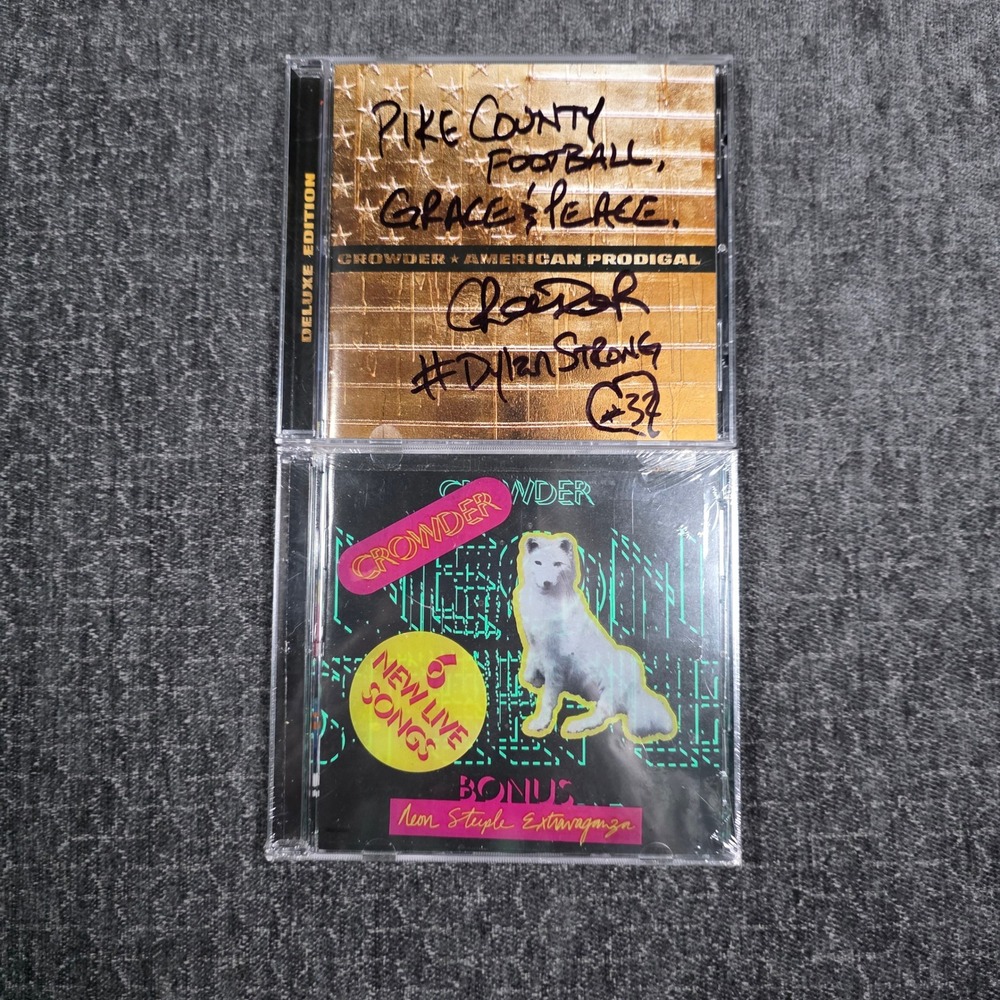 DELUXE EDITION
PIKE COUNTY
FOOTBALL,
GRACE & PEACE.
CROWDER ★ AMERICAN PRODIGAL
CROWDER
#DylanSTRONG
#32
CROWDER
CROWDER
NEON
6
NEW LIVE
SONGS
BONUS
Neon Steeple Extravaganza